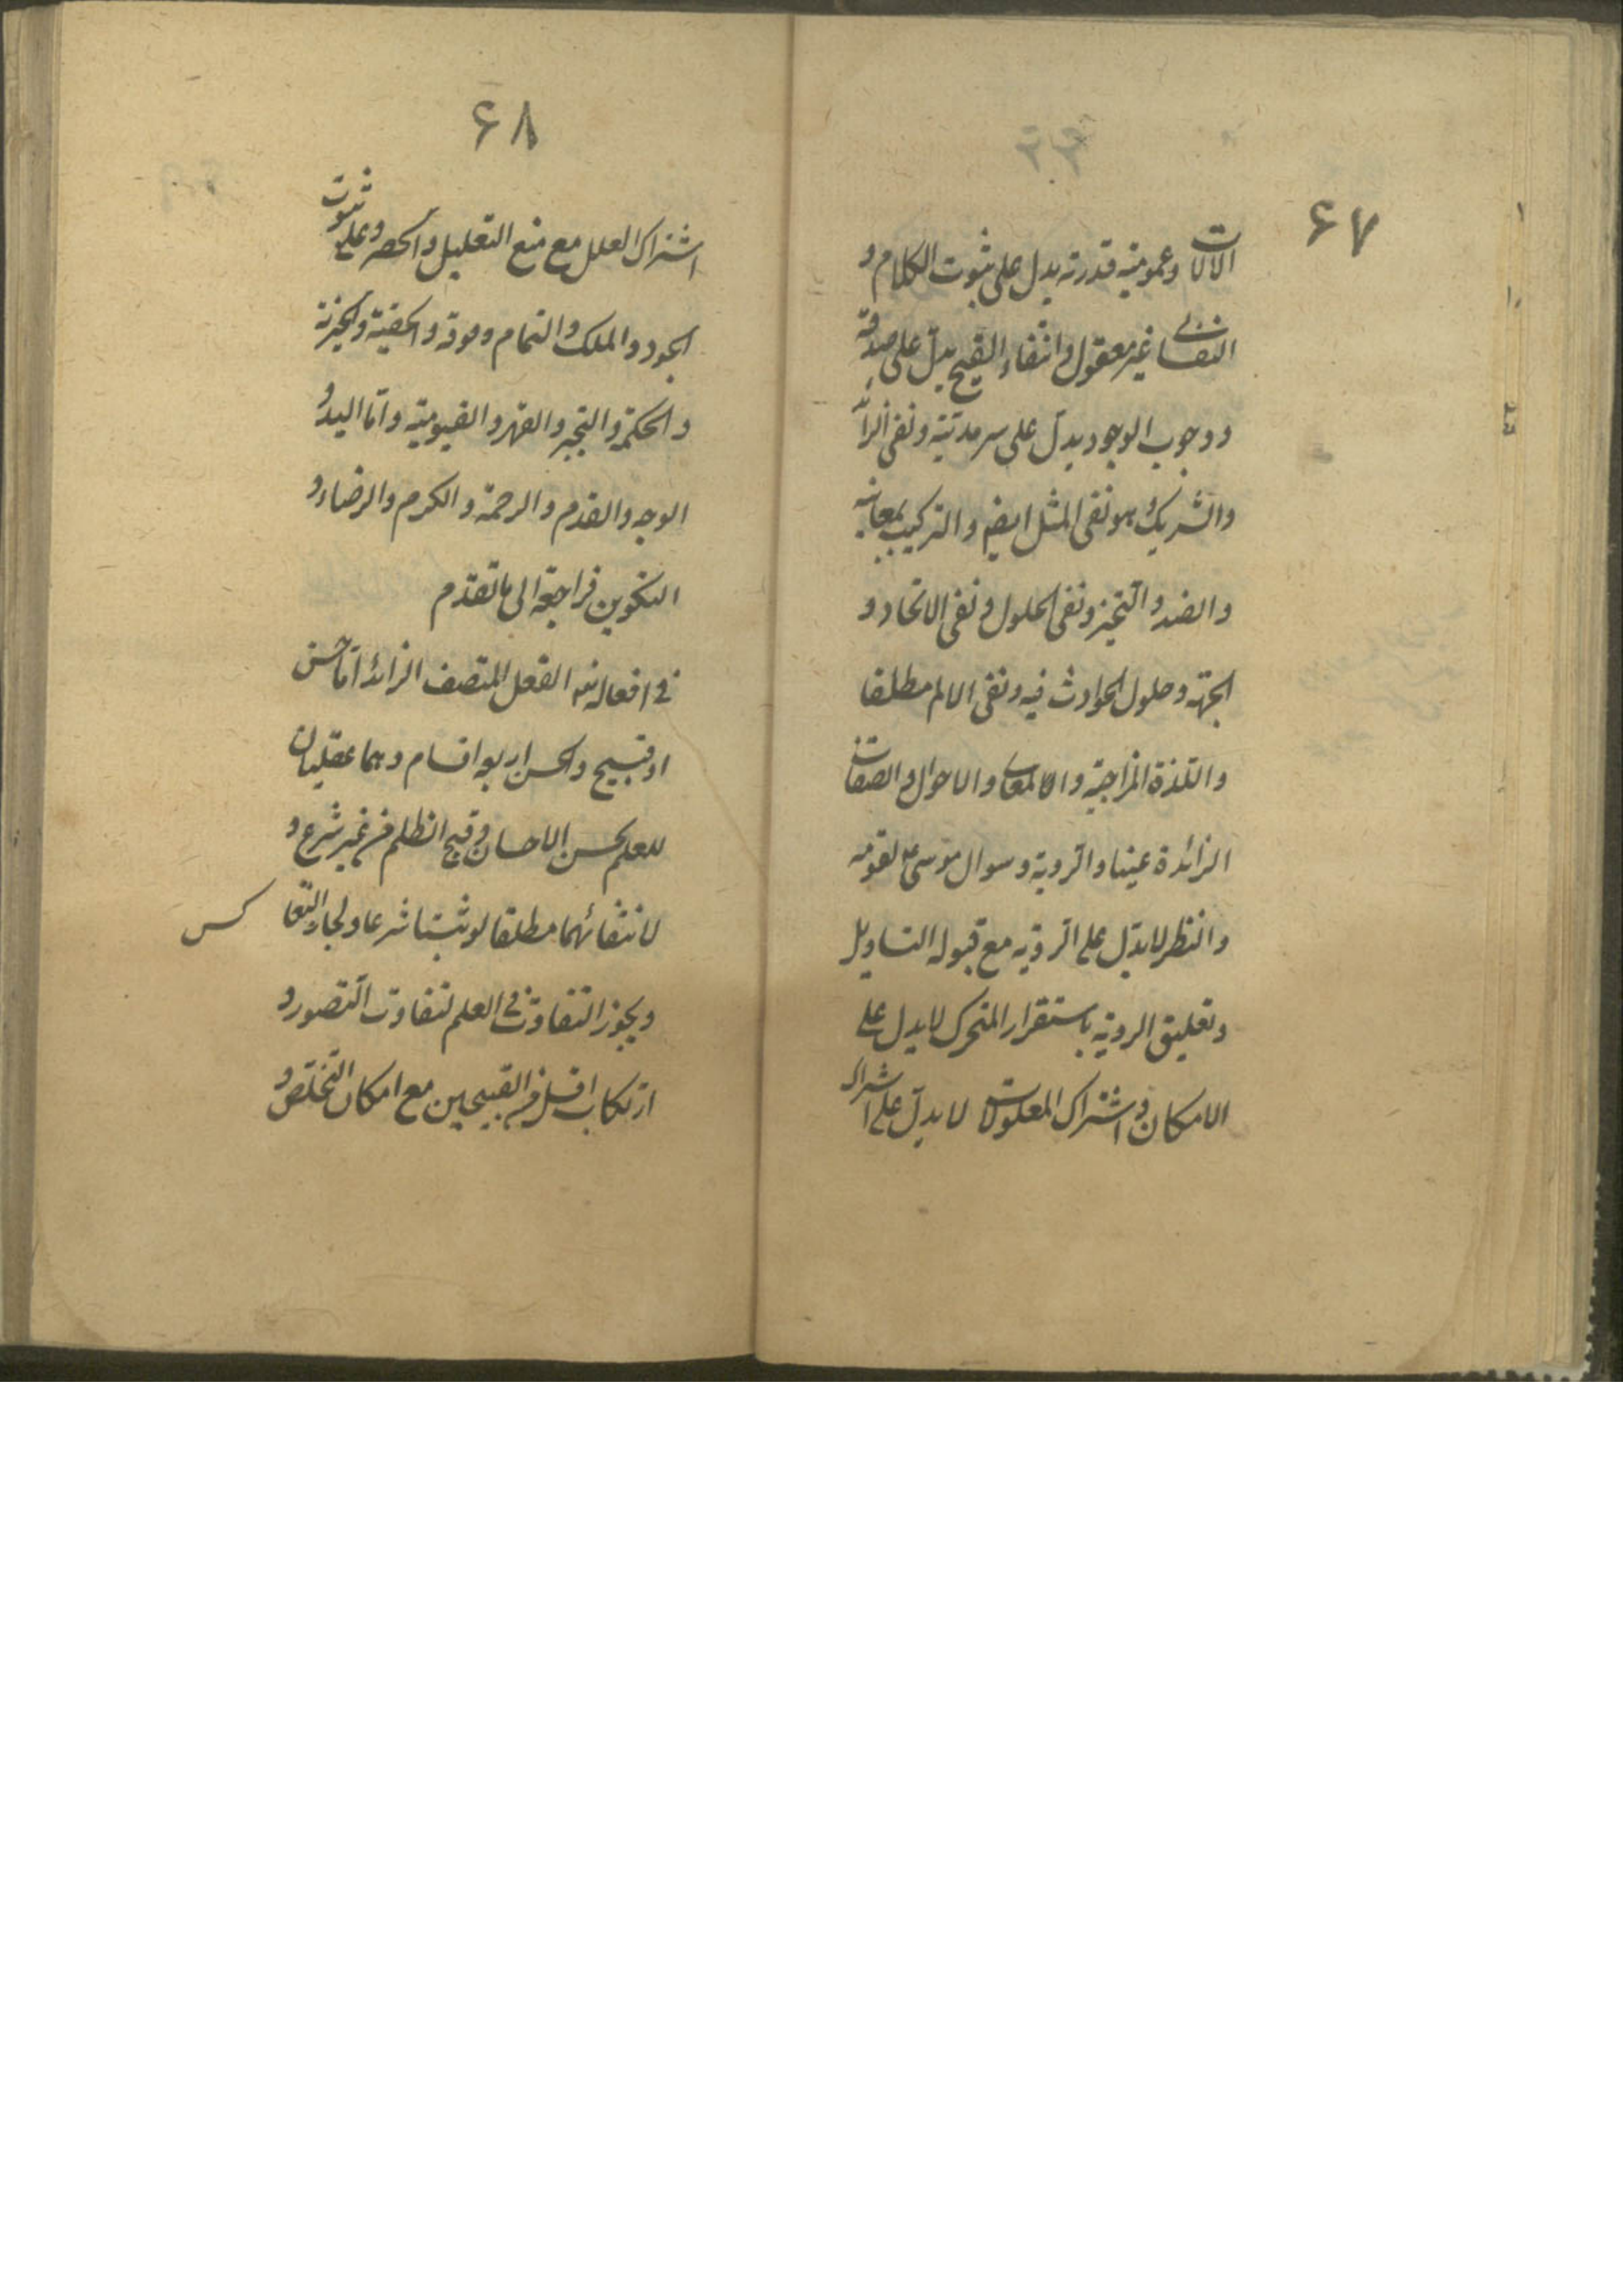 ۶۷
الآلات وعمومية قدرته يدل على ثبوت الكلام و
النفسانى غير معقول وانتفاء القبيح يدل على صدقه
ووجوب الوجود يدلّ على سرمديّته ونفى الزائد
والشريك وهو نفى المثل ايضا والتركيب بمعانيه
والضد والتحيّز ونفى الحلول ونفى الاتحاد و
الجهة وحلول الحوادث فيه ونفى الالم مطلقا
واللذة المزاجية والمعانى والاحوال والصفات
الزائدة عينا والرؤية وسوال موسى ع لقومه
والنظر لا يدلّ على الرؤية مع قبوله التاويل
وتعليق الرؤية باستقرار المتحرك لا يدل على
الامكان واشتراك المعلولات لا يدلّ على اشتراك
۶۸
اشتراك العلل مع منع التعليل والحصر وعلى ثبوت
الجود والملك والتمام وفوقه والحقية والخيرية
والحكمة والتجبر والقهر والقيومية وامّا اليد و
الوجه والقدم والرحمة والكرم والرضاء و
التكوين فراجعة الى ما تقدّم
فى افعاله تعه الفعل المتصف الزائد امّا حسن
او قبيح والحسن اربعة اقسام وهما عقليان
للعلم بحسن الاحسان وقبح الظلم من غير شرع و
لانتفائهما مطلقا لو ثبتا شرعا ولجاز التعا كس
ويجوز التفاوت فى العلم لتفاوت التصور و
ارتكاب اقل القبيحين مع امكان التخلّص و